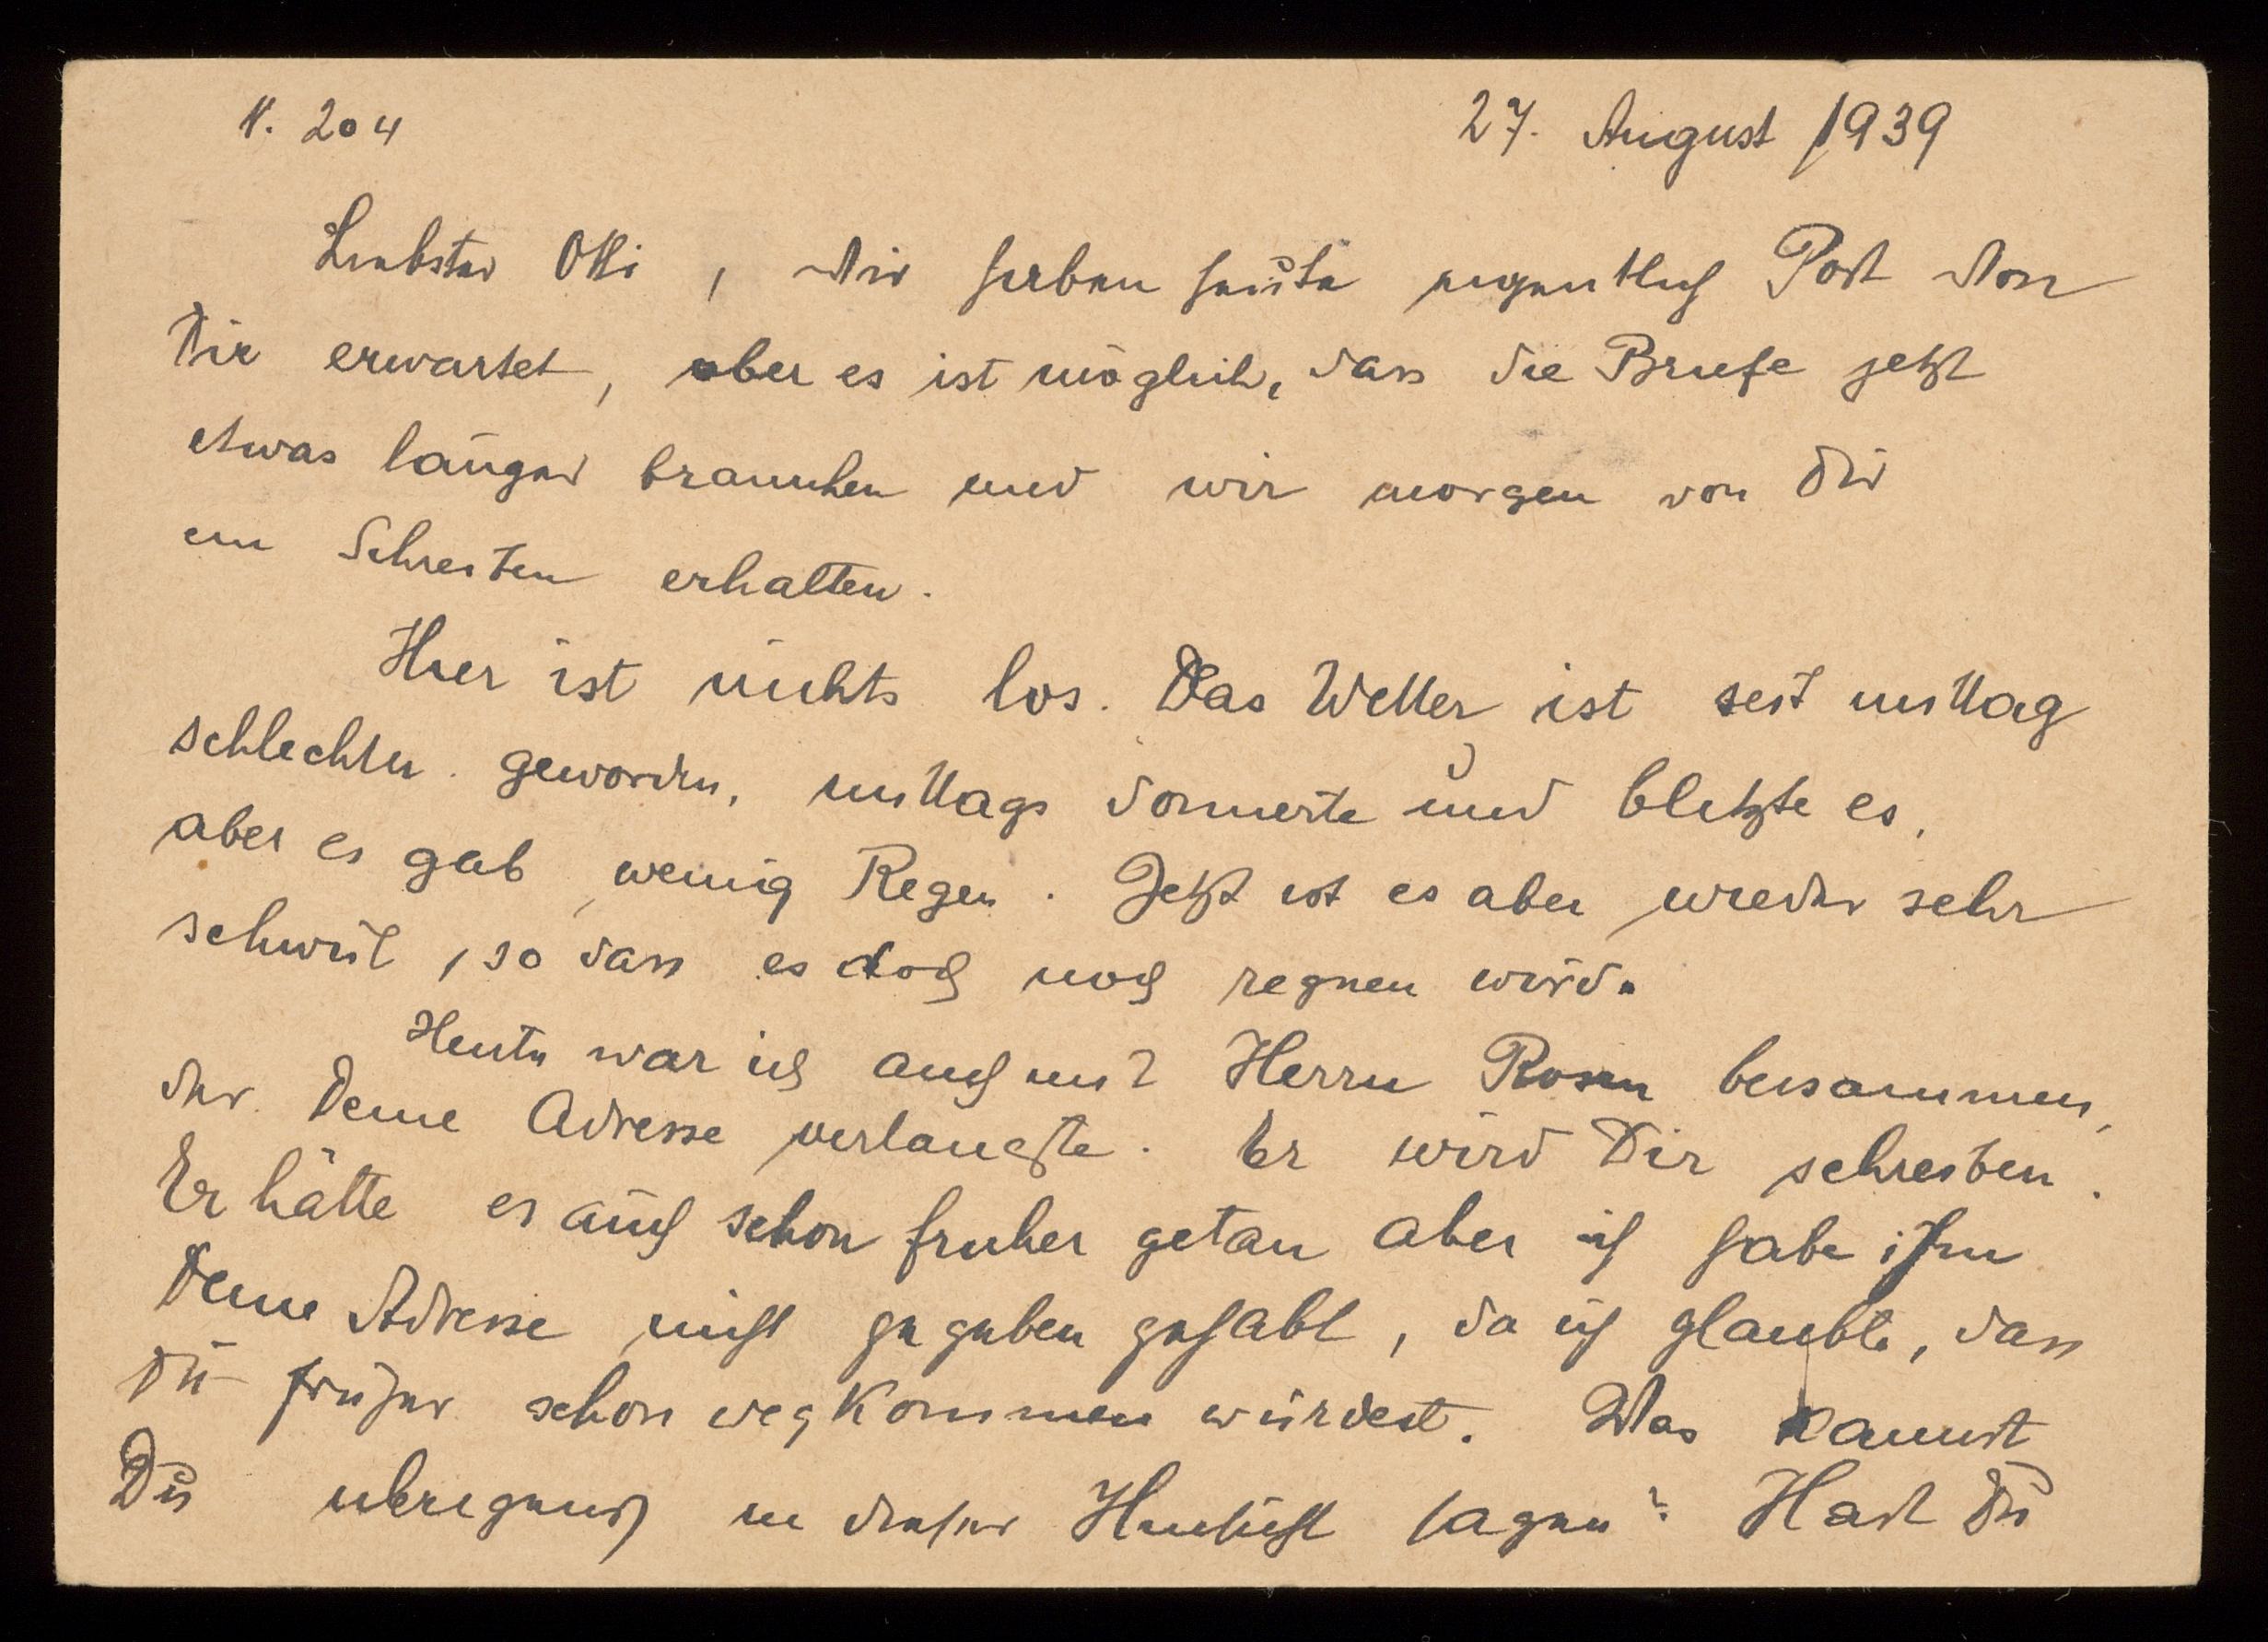 N. 204 27. August 1939
Liebster Otti, wir haben heute eigentlich Post von
Dir erwartet, aber es ist möglich, dass die Briefe jetzt
etwas länger brauchen und wir morgen von Dir
ein Schreiben erhalten.
Hier ist nichts los. Das Wetter ist seit mittag
schlechter geworden, mittags donnerte und blitzte es,
aber es gab wenig Regen. Jetzt ist es aber wieder sehr
schwül, so dass es doch noch regnen wird.
Heute war ich auch mit Herrn Rosen beisammen,
der Deine Adresse verlangte. Er wird Dir schreiben.
Er hätte es auch schon früher getan aber ich habe ihm
Deine Adresse nicht gegeben gehabt, da ich glaubte, dass
Du früher schon wegkommen würdest. Was kannst
Du übrigens in dieser Hinsicht sagen? Hast Du